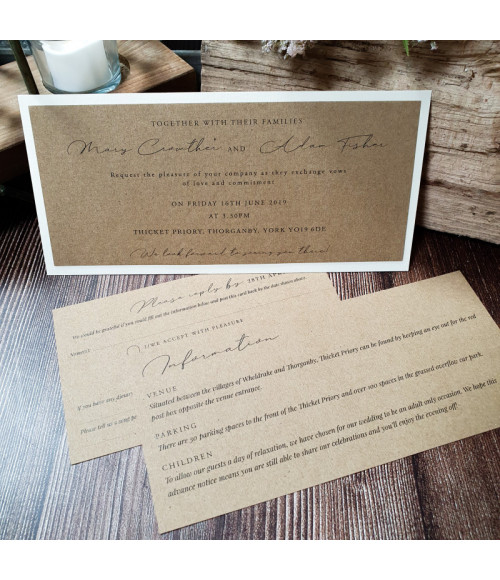 TOGETHER WITH THEIR FAMILIES
Mary Crowther AND Adam Fisher
Request the pleasure of your company as they exchange vows
of love and commitment
ON FRIDAY 18TH JUNE 2019
AT 3.30PM
THICKET PRIORY, THORGANBY, YORK YO19 6DE
We look forward to seeing you there
Please reply by 18TH APR
We would be grateful if you could fill out the information below and post this card back by the date shown above
Name(s)
I/WE ACCEPT WITH PLEASURE
If you have any dietary
Please tell us a song
Information
VENUE
Situated between the villages of Wheldrake and Thorganby, Thicket Priory can be found by keeping an eye out for the red
post box opposite the venue entrance.
PARKING
There are 30 parking spaces to the front of the Thicket Priory and over 100 spaces in the grassed overflow car park.
CHILDREN
To allow our guests a day of relaxation, we have chosen for our wedding to be an adult only occasion. We hope this
advance notice means you are still able to share our celebrations and you'll enjoy the evening off!